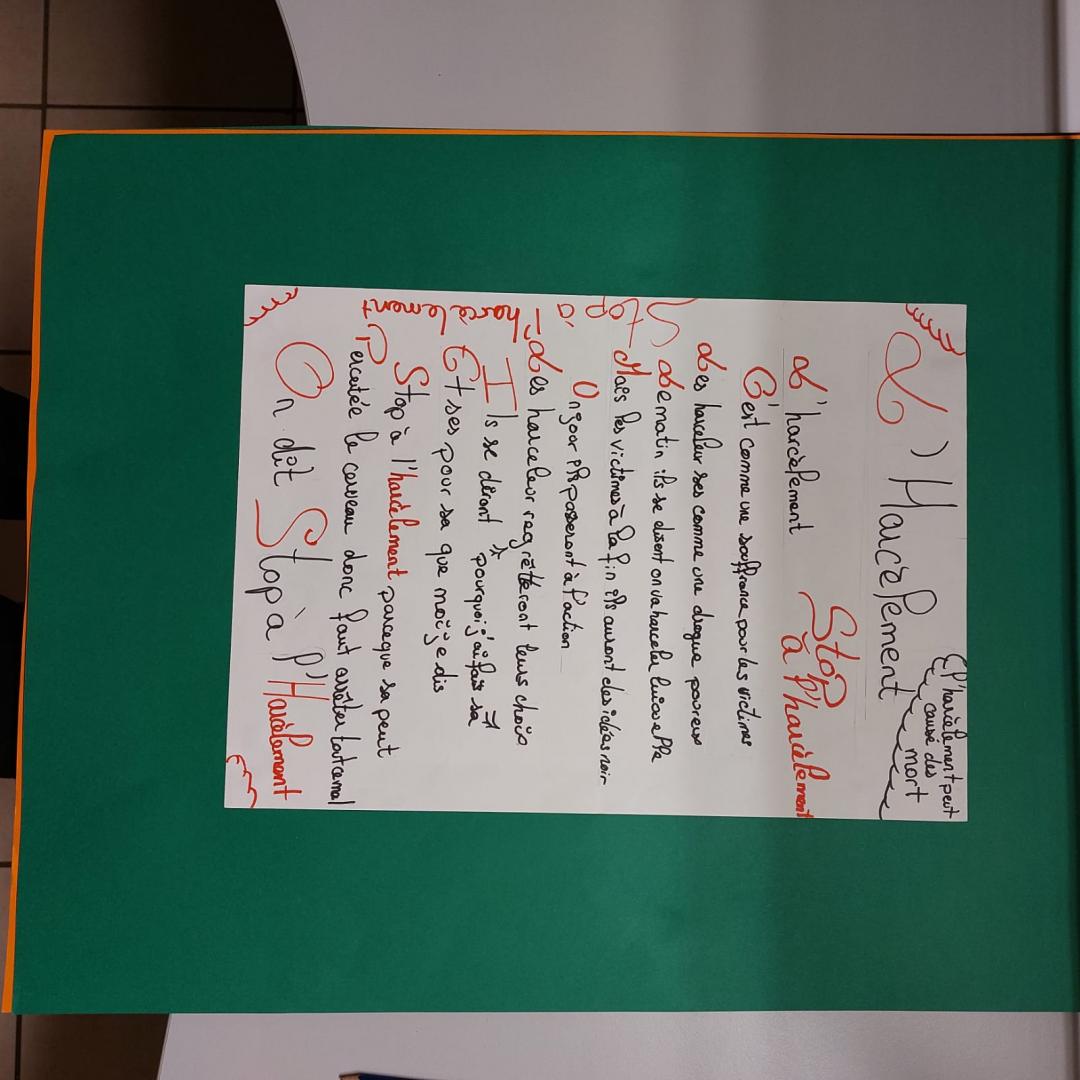 L'Harcèlement
L'harcèlement peut
causé des
mort
Stop
à l'harcèlement
L'harcèlement
C'est comme une souffrance pour les victimes
Les harceler ses comme une drogue pour eux
Le matin ils se disent on va harceler lui ou elle
Mais les victimes à la fin ils auront des idées noir
On jour ils passeront à l'action
Les harceleur regrètteront leurs choix
Ils se diront pourquoi j'ai fais sa
Et ses pour sa que moi je dis
Stop à l'harcèlement parceque sa peut
Percutée le cerveau donc faut arrêter tout ce mal
On dit Stop à l'Harcèlement
Stop à l'harcèlement